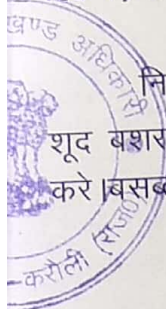 खण्ड अधिकारी
नि
शूद बशर
करे।बसब
करौली (राज०)